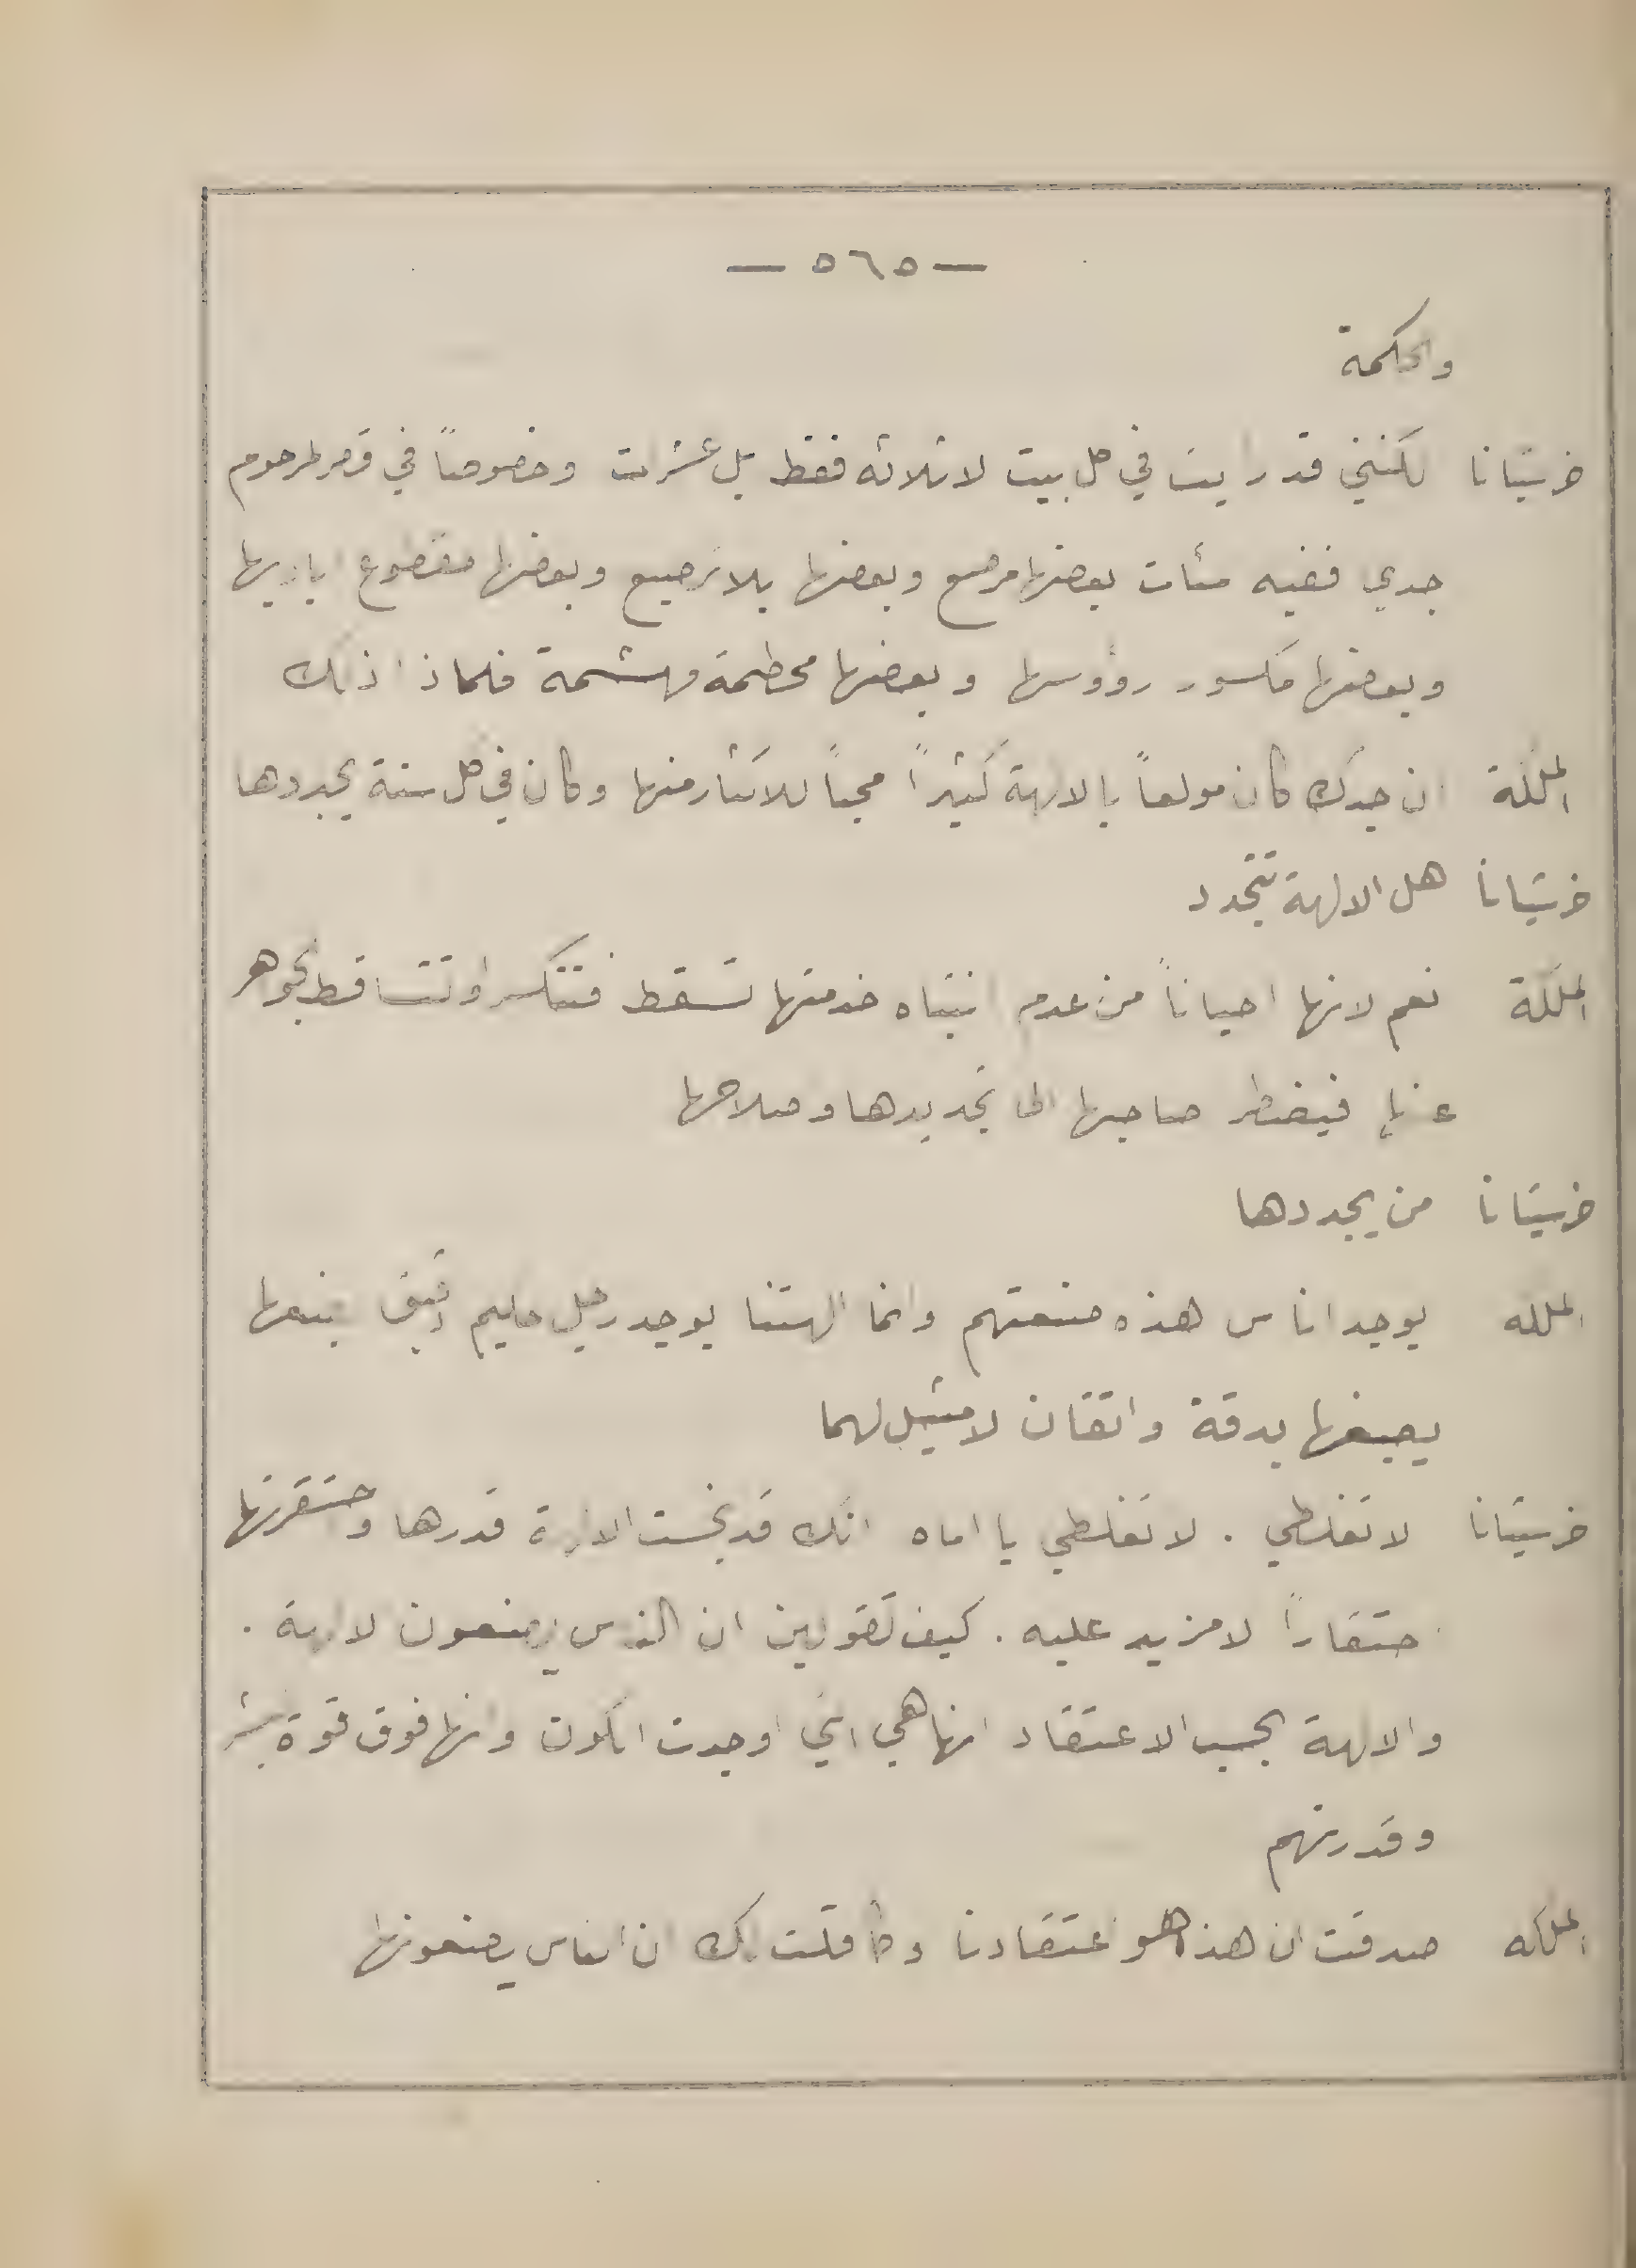 — ٥٦٥ —
والحكمة
خرستيانا لكنني قد رايت في كل بيت لا ثلاثه فقط بل عشرات وخصوصاً في قصر المرحوم
جدي ففيه مئات بعضها مرصع وبعضها بلا ترصيع وبعضها مقطوع اياديها
وبعضها مكسور رؤوسها وبعضها محطمة مهشمة فلماذا ذلك
الملكة ان جدك كان مولعاً بالالهة كثيراً محباً للاكثار منها وكان في كل سنة يجددها
خرستيانا هل الالهة تتجدد
الملكة نعم لانها احياناً من عدم انتباه خدمتها تسقط فتتكسر او تتساقط الجواهر
عنها فيضطر صاحبها الى تجديدها وصلاحها
خرستيانا من يجددها
الملكه يوجد اناس هذه صنعتهم وانما الهتنا يوجد رجل حليم يصنعها
يصيغها بدقة واتقان لا مثيل لهما
خرستيانا لا تغلطي . لا تغلطي يا اماه انك قد بخست الالهة قدرها وحتقرتها
احتقاراً لا مزيد عليه . كيف تقولين ان الناس يصنعون الالهة .
والالهة بحسب الاعتقاد انها هي التي اوجدت الكون وانها فوق قوة البشر
وقدرتهم
الملكه صدقت ان هذا هو اعتقادنا وما قلت لك ان الناس يصنعونها